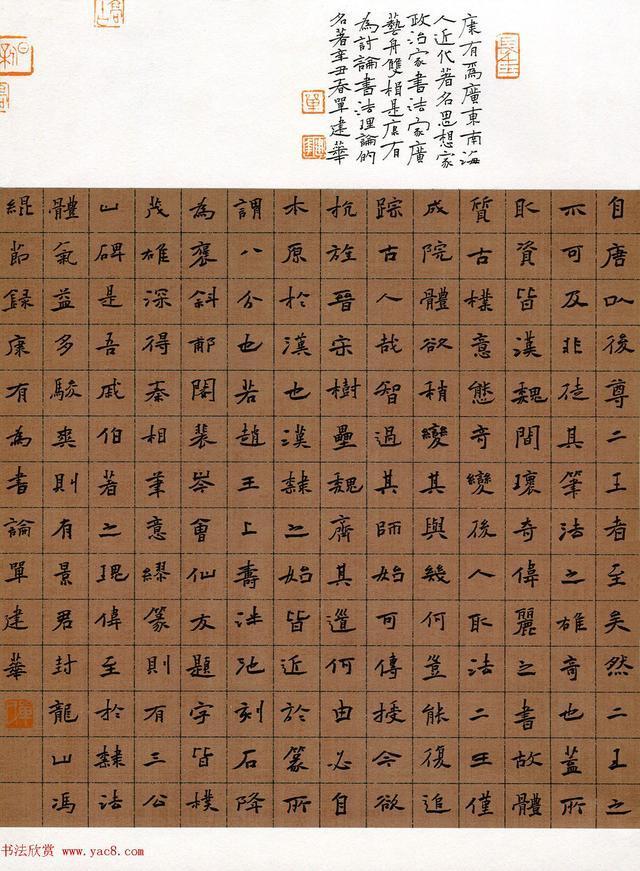 康有爲廣東南海
人近代著名思想家
政治家書法家廣
藝舟雙楫是康有
為討論書法理論的
名著辛丑春單建華
自唐以後尊二王者至矣然二王之
不可及非徒其筆法之雄奇也蓋所
取資皆漢魏間瓌奇偉麗之書故體
質古樸意態奇變後人取法二王僅
成院體欲稍變其與幾何豈能復追
踪古人哉智過其師始可傳授今欲
抗旌晉宋樹壘魏齊其道何由必自
木原於漢也漢隸之始皆近於篆所
謂八分也若趙王上壽泮池刻石降
為褒斜郙閣裴岑會仙友題字皆樸
茂雄深得秦相筆意繆篆則有三公
山碑是吾戚伯著之瑰偉至於隸法
體氣益多駿爽則有景君封龍山馮
緄節録康有為書論單建華
书法欣赏 www.yac8.com